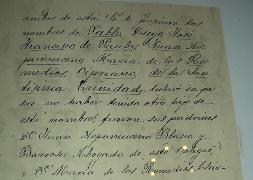 ambos de esta. Se le pusieron los
nombres de Pablo, Diego, José,
Francisco de Paula, Juan Ne-
pomuceno, María de los Re-
medios, Cipriano, de la San-
tísima Trinidad,
dre no haber tenido otro hijo de
este nombre, fueron sus padrinos
Dn Juan Nepomuceno Blasco y
Barroso, Abogado de este Colegio
y Da María de los Remedios